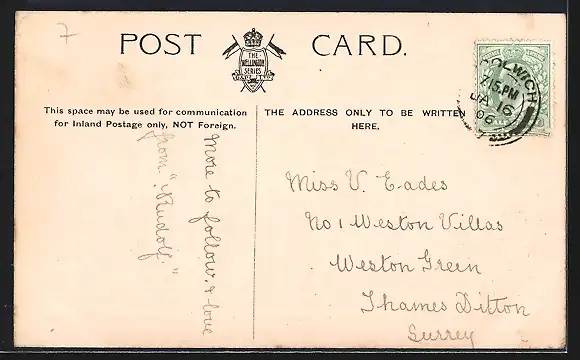 7
POST CARD.
THE
WELLINGTON
SERIES
This space may be used for communication
for Inland Postage only, NOT Foreign.
THE ADDRESS ONLY TO BE WRITTEN
HERE.
OOLWICH
7.15 PM
16
06
More to follow. & love
from "Rudolf."
Miss V. Eades
No 1 Weston Villas
Weston Green
Thames Ditton
Surrey